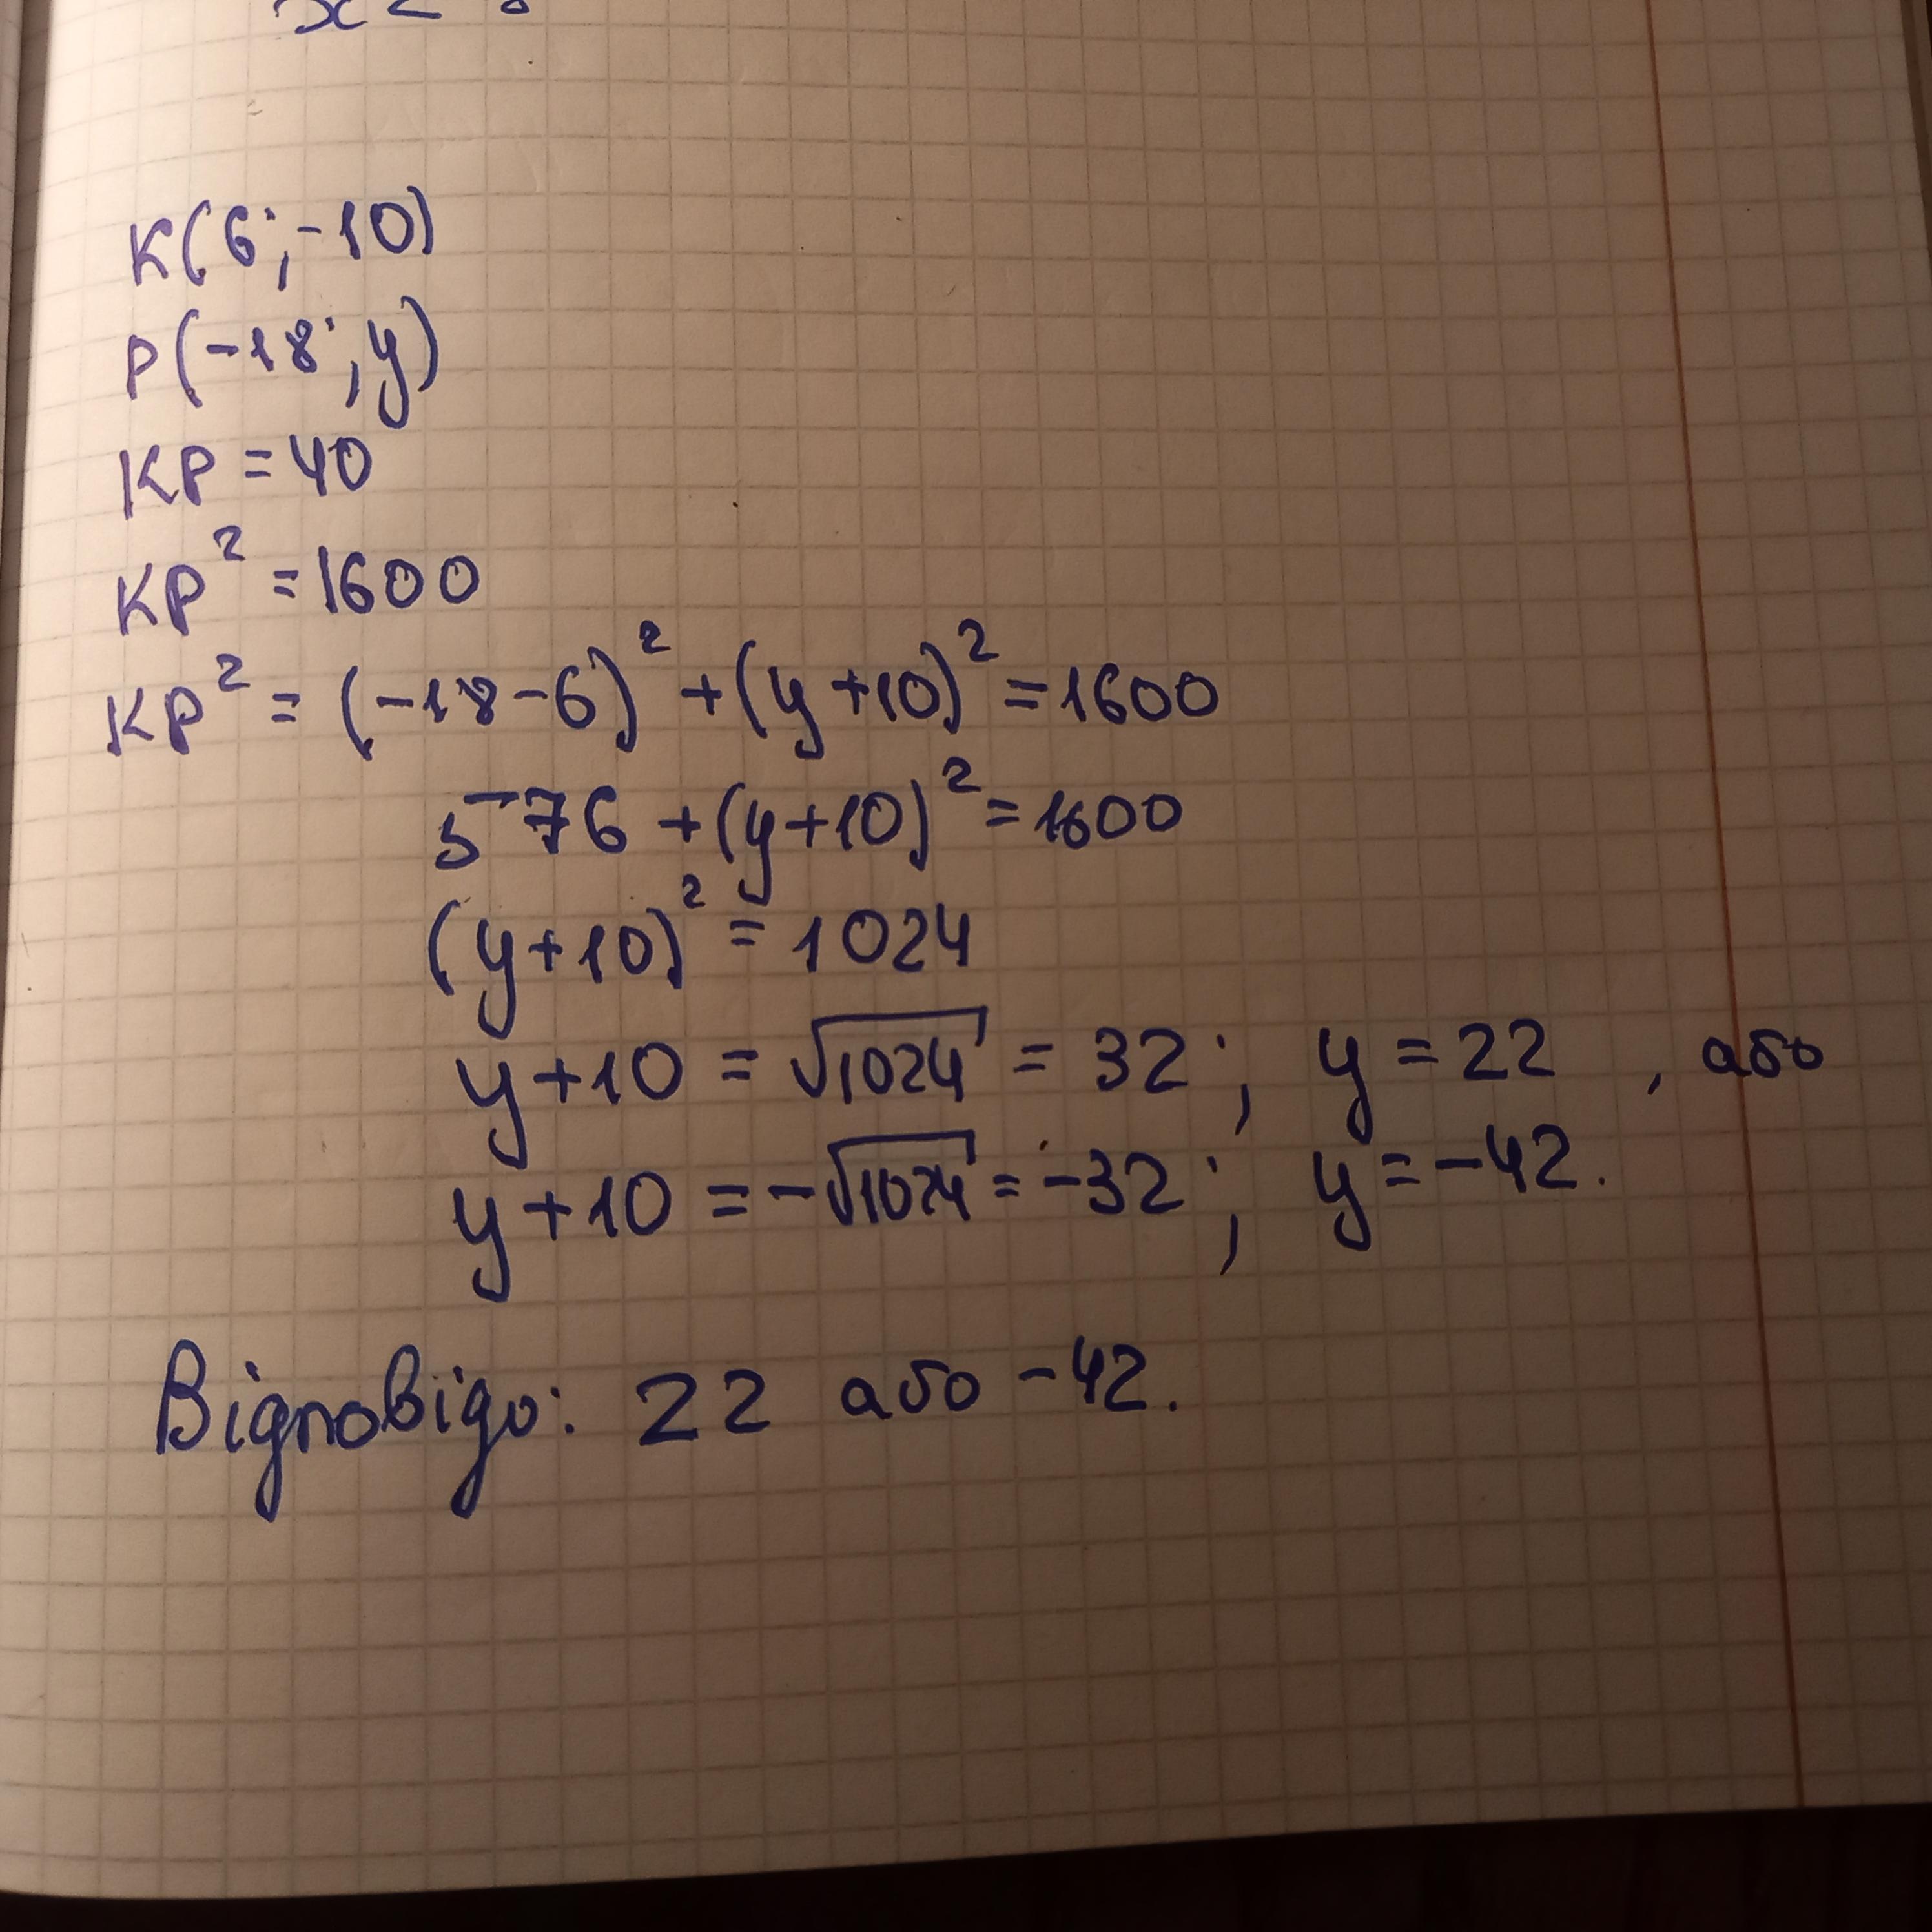 K(6;-10)
P(-18;y)
KP=40
KP²=1600
KP²=(-18-6)²+(y+10)²=1600
576+(y+10)²=1600
(y+10)²=1024
y+10=√1024=32; y=22, або
y+10=-√1024=-32; y=-42.
Відповідь: 22 або -42.